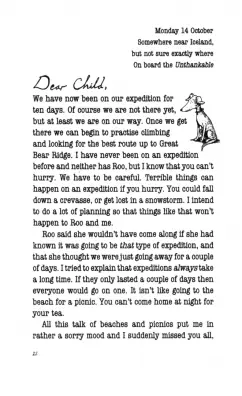 Monday 14 October
Somewhere near Iceland,
but not sure exactly where
On board the Unthankable
Dear Child,
We have now been on our expedition for
ten days. Of course we are not there yet,
but at least we are on our way. Once we get
there we can begin to practise climbing
and looking for the best route up to Great
Bear Ridge. I have never been on an expedition
before and neither has Roo, but I know that you can't
hurry. We have to be careful. Terrible things can
happen on an expedition if you hurry. You could fall
down a crevasse, or get lost in a snowstorm. I intend
to do a lot of planning so that things like that won't
happen to Roo and me.
Roo said she wouldn't have come along if she had
known it was going to be that type of expedition, and
that she thought we were just going away for a couple
of days. I tried to explain that expeditions always take
a long time. If they only lasted a couple of days then
everyone would go on one. It isn't like going to the
beach for a picnic. You can't come home at night for
your tea.
All this talk of beaches and picnics put me in
rather a sorry mood and I suddenly missed you all,